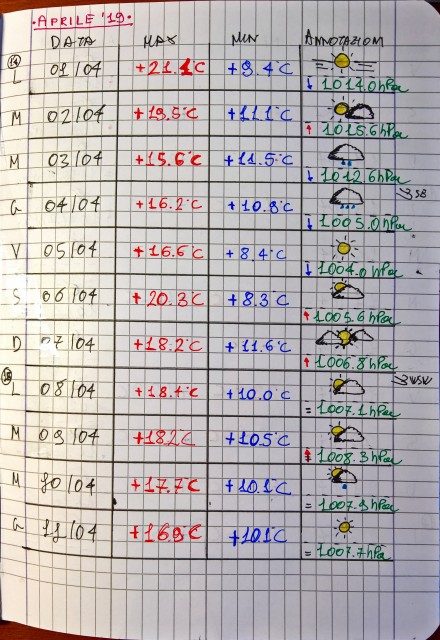 • APRILE '19 •
DATA MAX MIN ANNOTAZIONI
14
L 01/04 +21.1°C +9.4°C
↓ 1014.0hPa
M 02/04 +19.5°C +11.1°C
↑ 1015.6hPa
M 03/04 +15.6°C +11.5°C
↓ 1012.6hPa
G 04/04 +16.2°C +10.8°C
↓ 1005.0hPa
V 05/04 +16.6°C +8.4°C
↓ 1004.0hPa
S 06/04 +20.3°C +8.3°C
↑ 1005.6hPa
D 07/04 +18.2°C +11.6°C
↑ 1006.8hPa
15 WSW
L 08/04 +10.0°C
= 1007.1hPa
M 09/04 +18.2°C +10.5°C
1008.3hPa
M 10/04 +17.7°C +10.1°C
= 1007.9hPa
G 11/04 +16.9°C +10.1°C
= 1007.7hPa